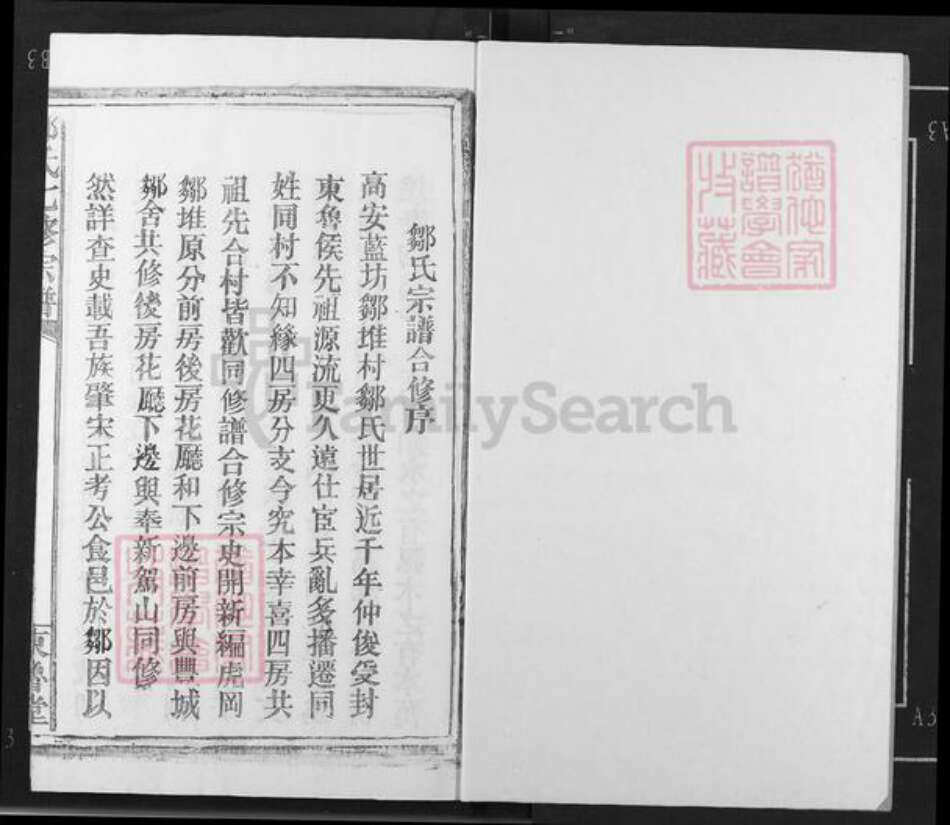 鄒氏宗譜合修序
高安藍坊鄒堆村鄒氏世居近千年仲俊受封
東魯侯先祖源流更久遠仕宦兵亂多播遷同
姓同村不知緣四房分支今究本幸喜四房共
祖先合村皆歡同修譜合修宗史開新編虎岡
鄒堆原分前房後房花廳和下邊前房與豐城
鄒舍共修後房花廳下邊與奉新駕山同修
然詳查史載吾族肇宋正考公食邑於鄒因以
氏七修宗譜
東魯堂
譜學會
收藏
FamilySearch
B3
A3
A3
3